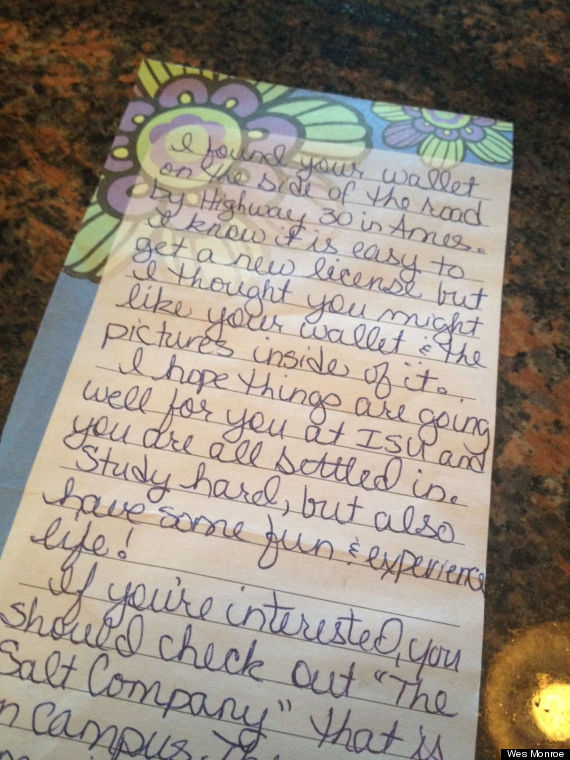 I found your wallet
on the side of the road
by Highway 30 in Ames.
I know it is easy to
get a new license but
I thought you might
like your wallet & the
pictures inside of it.
I hope things are going
well for you at ISU and
you are all settled in.
Study hard, but also
have some fun & experience
life!
If you're interested, you
should check out "The
Salt Company" that is
n campus.
Wes Monroe